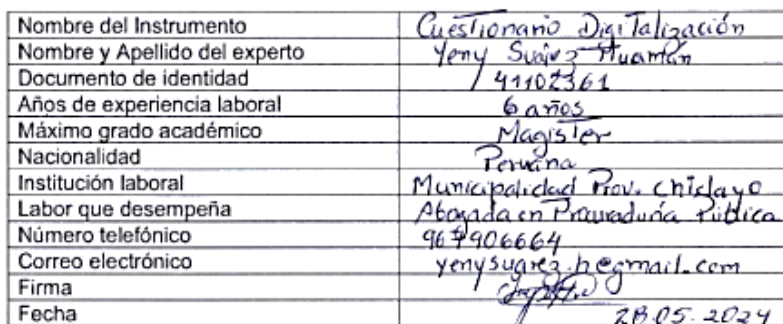 Nombre del Instrumento Cuestionario Digitalización
Nombre y Apellido del experto Yeny Suárez Huamán
Documento de identidad 41102361
Años de experiencia laboral 6 años
Máximo grado académico Magister
Nacionalidad Peruana
Institución laboral Municipalidad Prov. Chiclayo
Labor que desempeña Abogada en Procuraduría Pública
Número telefónico 967906664
Correo electrónico yenysuarez.h@gmail.com
Firma
Fecha 28.05.2024